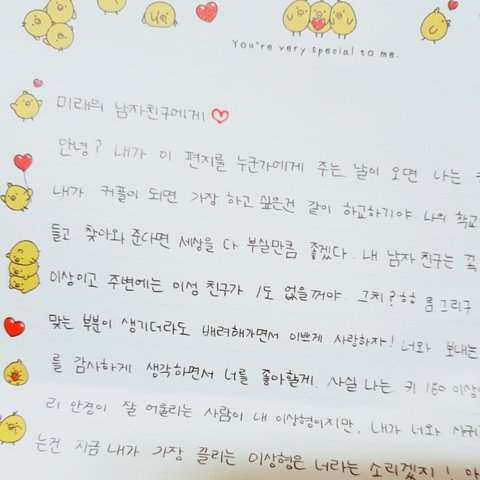 You're very special to me.
미래의 남자친구에게
안녕? 내가 이 편지를 누군가에게 주는 날이 오면 나는
내가 커플이 되면 가장 하고 싶은건 같이 하교하기야. 나의 학교
들고 찾아와 준다면 세상을 다 부실만큼 좋겠다. 내 남자친구는 꼭
이상이고 주변에는 이성 친구가 1도 없을꺼야. 그치? ㅎㅎ 음 그리구
맞는 부분이 생기더라도 배려해가면서 이쁘게 사랑하자! 너와 보내는
를 감사하게 생각하면서 너를 좋아할게. 사실 나는 키 180 이상
리 안경이 잘 어울리는 사람이 내 이상형이지만, 내가 너와 사귀
는건 지금 내가 가장 끌리는 이상형은 너라는 소리겠지!